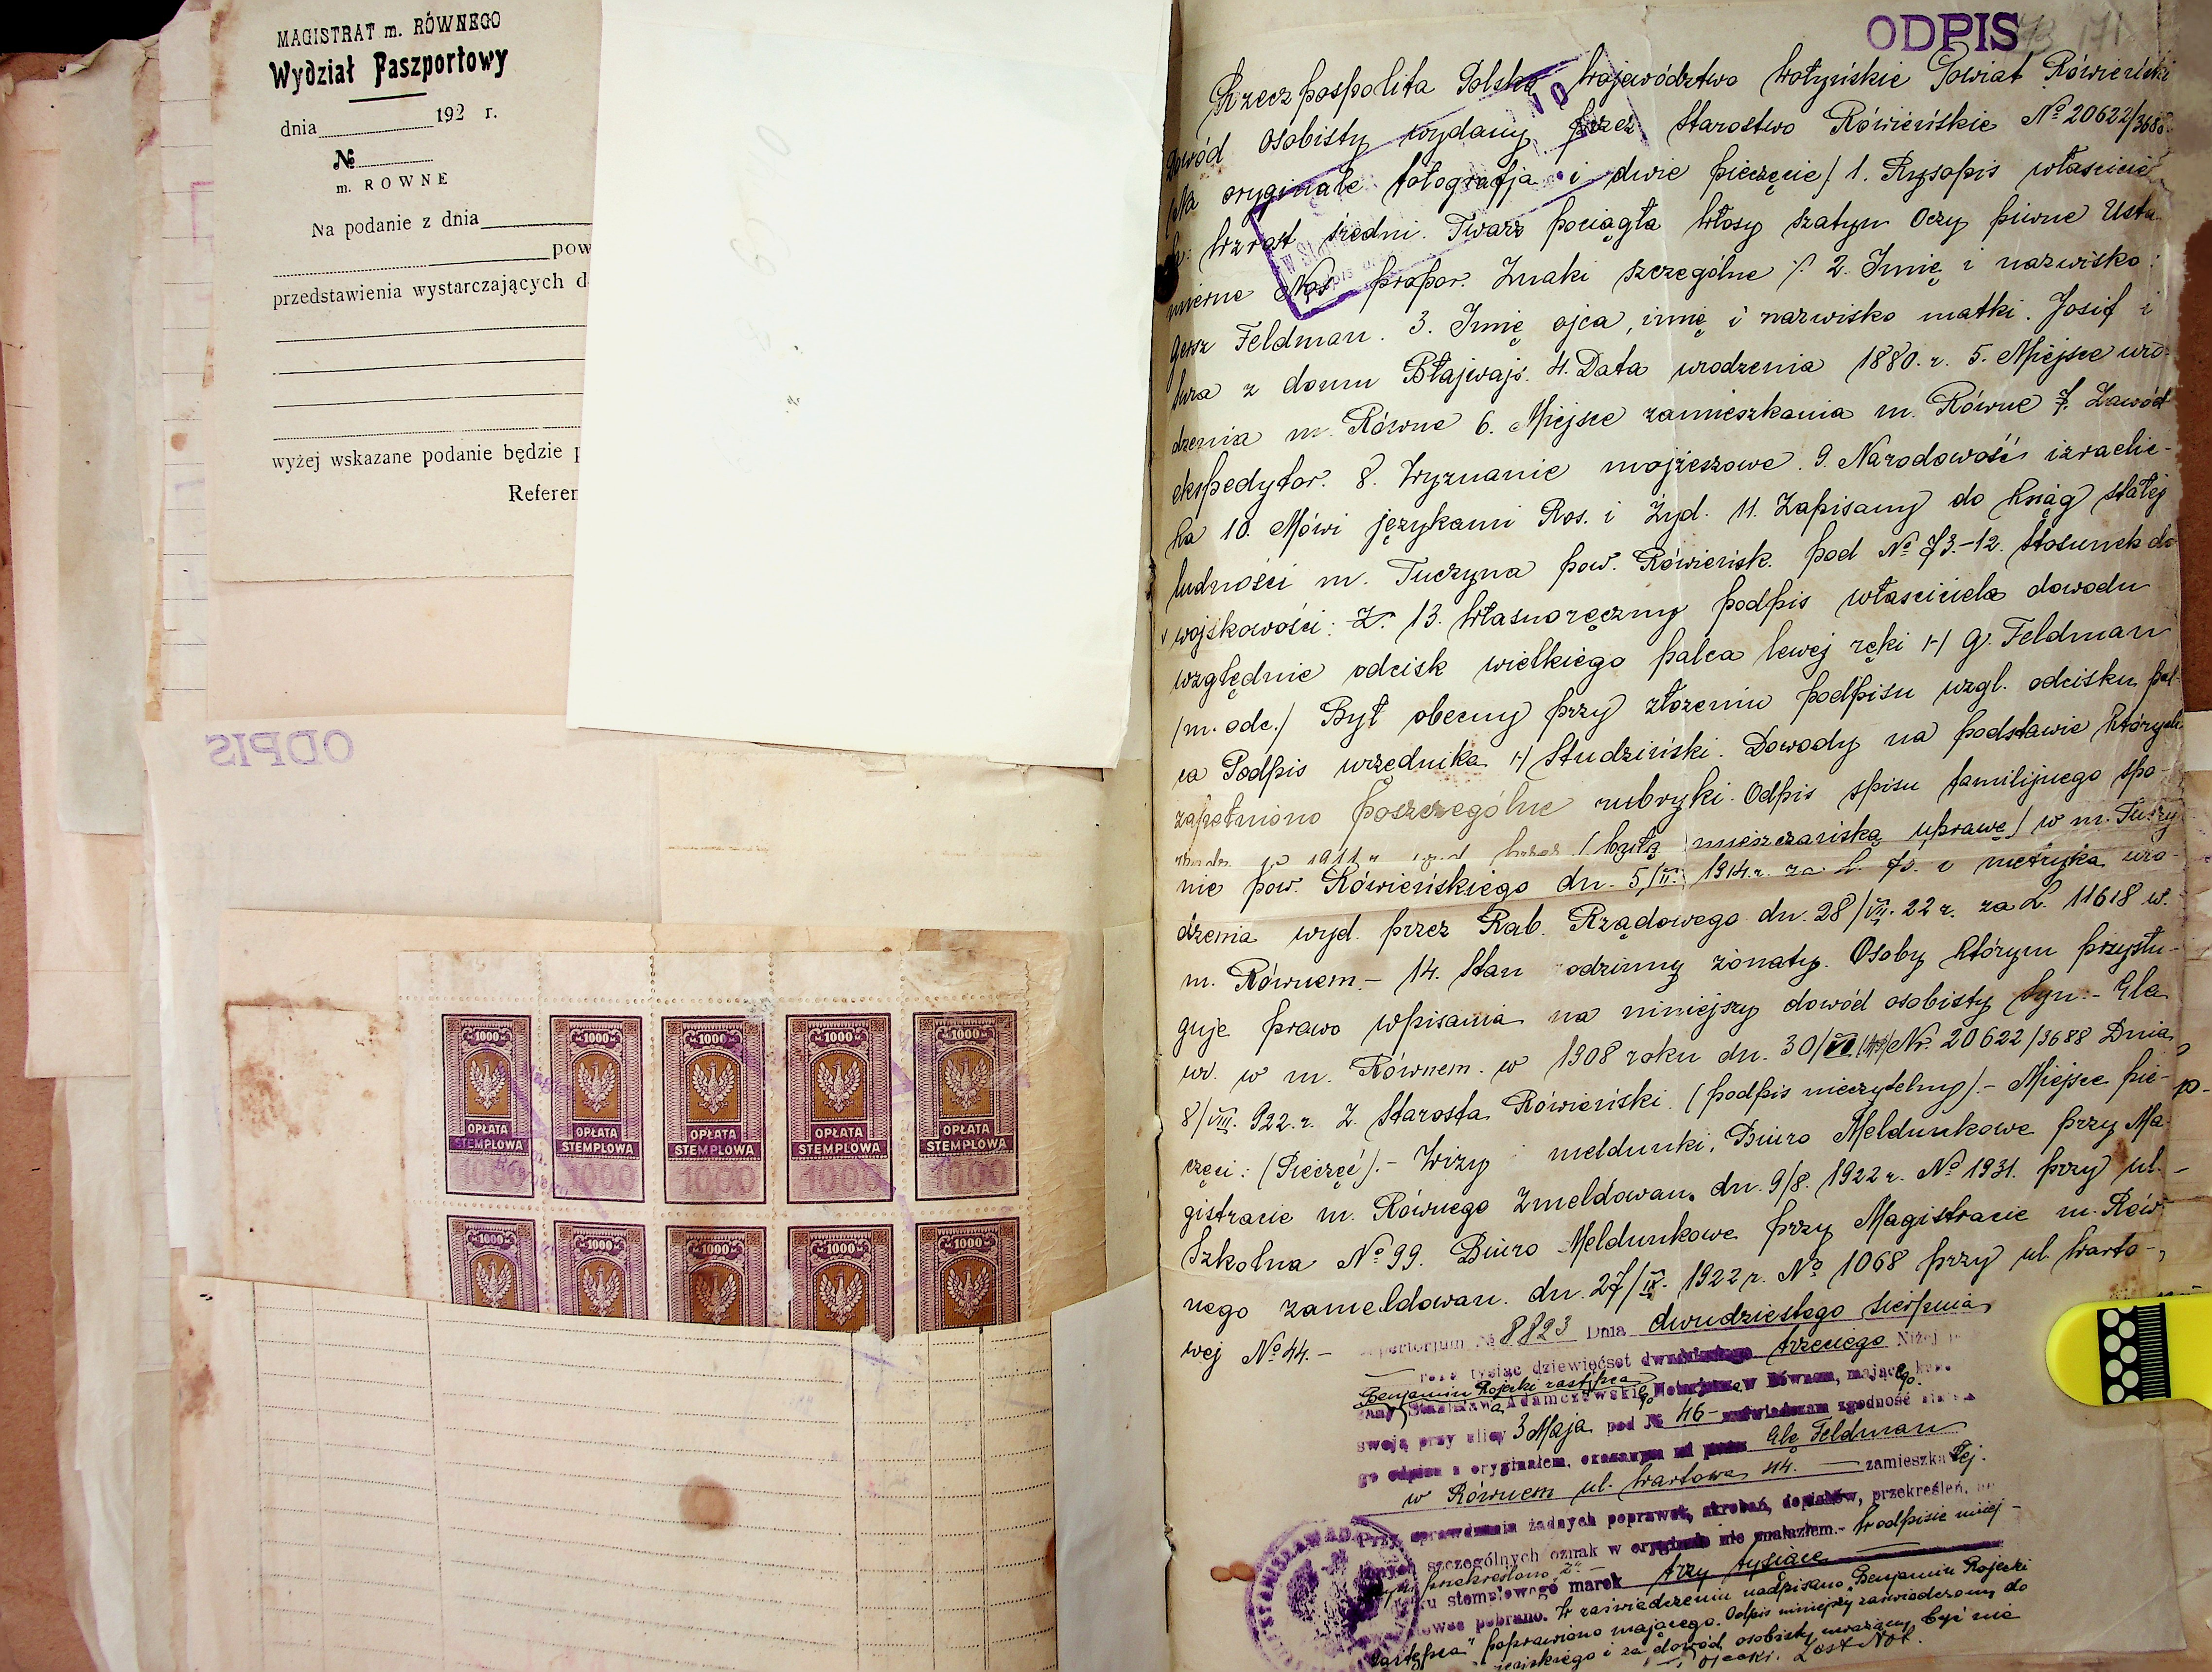 MAGISTRAT m. RÓWNEGO
Wydział Paszportowy
dnia 192 r.
№
m. ROWNE
Na podanie z dnia
pow
przedstawienia wystarczających d
wyżej wskazane podanie będzie p
Referen
ODPIS
1000 1000 1000 1000 1000
OPŁATA OPŁATA OPŁATA OPŁATA OPŁATA
STEMPLOWA STEMPLOWA STEMPLOWA STEMPLOWA STEMPLOWA
1000 1000 1000 1000 1000
1000 1000 1000 1000 1000
ODPIS
Rzeczpospolita Polska Województwo Wołyńskie Powiat Rówieński
Dowód osobisty wydany przez Starostwo Rówieńskie № 20622/3688
/Na oryginale fotografja i dwie pieczęcie/ 1. Rysopis właścicie
la: Wzrost średni. Twarz pociągła Włosy szatyn Oczy piwne Usta
mierne Nos propor. Znaki szczególne ./. 2. Imię i nazwisko:
Gersz Feldman. 3. Imię ojca, imię i nazwisko matki. Josif i
z domu Błajwajs. 4. Data urodzenia 1880. r. 5. Miejsce uro-
dzenia m. Równe 6. Miejsce zamieszkania m. Równe 7. Zawód
ekspedytor. 8. Wyznanie mojżeszowe. 9. Narodowość izraelic-
ka 10. Mówi językami Ros. i Żyd. 11. Zapisany do ksiąg stałej
ludności m. Tuczyna pow. Rówieńsk. pod № 73.-12. Stosunek do
wojskowości: Z. 13. Własnoręczny podpis właściciela dowodu
względnie odcisk wielkiego palca lewej ręki /-/ G. Feldman
/m. odc./ Był obecny przy złożeniu podpisu wzgl. odcisku pal-
ca Podpis urzędnika /-/ Studziński. Dowody na podstawie których
zapełniono poszczególne rubryki. Odpis spisu familijnego spo-
w 1911 r. przez (byłą mieszczańską uprawę) w m. Tuczy
nie pow. Rówieńskiego dn. 5/II. 1914 r. za L. 73. i metryka uro-
dzenia wyd. przez Rab. Rządowego dn. 28/VII. 22 r. za L. 11618 w.
m. Równem.- 14. Stan rodzinny żonaty. Osoby którym przysłu-
guje prawo wpisania na niniejszy dowód osobisty Syn.- Ela
ur. w m. Równem. w 1908 roku dn. 30/VI Nr. 20622/3688 Dnia
8/VIII. 922. r. Z. Starosta Rówieński. (podpis nieczytelny).- Miejsce pie-
częci: (Pieczęć).- Wizy i meldunki. Biuro Meldunkowe przy Ma-
gistracie m. Równego Zmeldowan. dn. 9/8. 1922 r. № 1931. przy ul.-
Szkolna № 99. Biuro Meldunkowe przy Magistracie m. Rów-
nego zameldowan. dn. 27/IX. 1922 r. № 1068 przy ul Warto-
wej № 44.-
Repertorjum № 8823 Dnia dwudziestego sierpnia
tysiąc dziewięćset dwudziestego trzeciego Niżej
Benjamin Rojecki zastępca
Stanisława Adamczewskiego Notarjusza w Równem, mającego
swoją przy ulicy 3 Maja pod № 46- zaświadczam zgodność
go odpisu z oryginałem, okazanym mi przez Elę Feldman
w Równem ul. Wartowa 44. zamieszkałej.
Przy sprawdzaniu żadnych poprawek, skrobań, dopisków, przekreśleń,
szczególnych oznak w oryginale nie znalazłem.- W odpisie niniej-
przekreślono "Z"-
stemplowego marek trzy tysiące
pobrano. W zaświadczeniu nadpisano "Benjamin Rojecki
zastępca" poprawiono mającego. Odpis niniejszy zaświadczony do
i za dowód osobisty uważany być nie
Zast. Not.